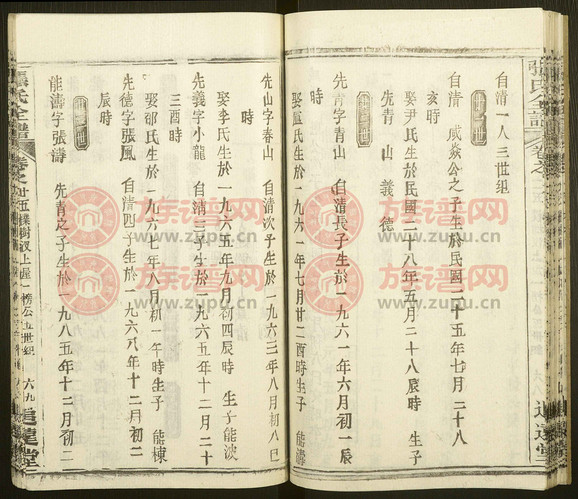 自清一人三世组
二世
自清 咸焱公之子生於民國二十五年七月二十八
亥時
娶尹氏生於民國二十八年五月二十八辰時 生子
先青 山 義 德
三世
先青字青山 自清長子生於一九六一年六月初一辰
時
娶盧氏生於一九六一年七月廿二酉時生子 能濤
先山字春山 自清次子生於一九六三年八月初八巳
時
娶李氏生於一九六五年九月初四辰時 生子能波
先義字小龍 自清三子生於一九六五年十二月二十
三酉時
娶邵氏生於一九六七年八月初一午時生子 能棟
先德字張風 自清四子生於一九六八年十二月初二
辰時
四世
能濤字張濤 先青之子生於一九八五年十二月初二
張氏全譜
卷之廿五樸樹溆上屋一榜公五世組 六九
追遠堂
張氏全譜
卷之
追遠堂
族谱网
www.zupu.cn
族谱网
www.zupu.cn
族谱网
www.zupu.cn
族谱网
www.zupu.cn